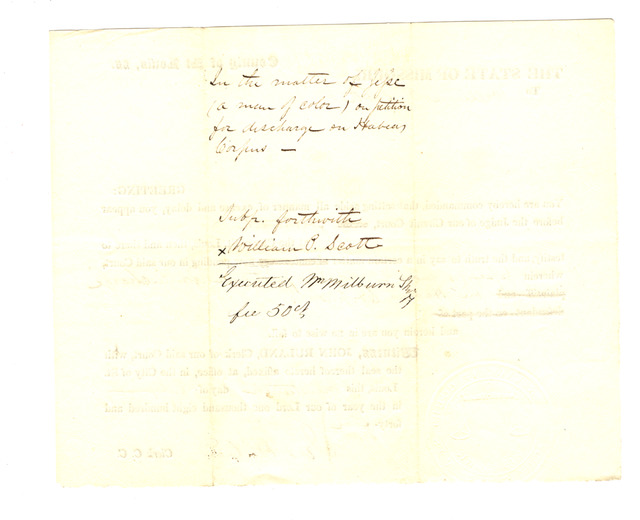 In the matter of Jesse
(a man of color) on petition
for discharge on Habeas
Corpus —
Subp. forthwith
x William P. Scott
Executed Wm Milburn Shff
fee 50cts
THE STATE OF MISSOURI
County of St Louis, ss.
To
GREETING:
You are hereby commanded, that setting aside all manner of excuse and delay, you appear
before the Judge of our Circuit Court,
and herein you are in no wise to fail.
WITNESS, JOHN RULAND, Clerk of our said Court, with
the seal thereof hereto affixed, at office, in the City of St.
Louis, this day of
in the year of our Lord one thousand eight hundred and
Clerk C. C.